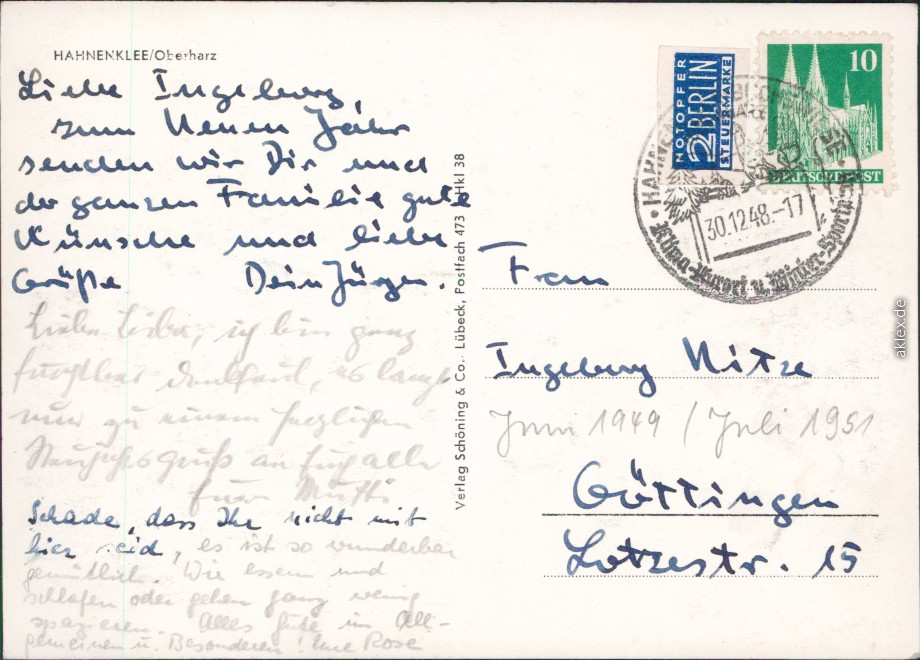 HAHNENKLEE/Oberharz
Liebe Ingeborg,
zum Neuen Jahr
senden wir Dir und
der ganzen Familie gute
Wünsche und liebe
Grüße Dein Jürgen.
Lieber Lieba, ich bin ganz
furchtbar denkfaul, es langt
nur zu einem herzlichen
Neujahrsgruß an Euch alle
Eure Mutti
Schade, dass Ihr nicht mit
hier seid, es ist so wunderbar
gemütlich. Wir essen und
schlafen oder gehen ganz wenig
spazieren. Alles Gute im All-
gemeinen u. Besonderen! Eure Rose
Verlag Schöning & Co., Lübeck, Postfach 473 Hkl 38
NOTOPFER
2 BERLIN
STEUERMARKE
10
DEUTSCHE POST
HAHNENKLEE
30.12.48.-17
Klima-Kurort u. Winter-Sportpl.
Frau
Ingeborg Nitze
Juni 1949 / Juli 1951
Göttingen
Lotzestr. 15
aklex.de